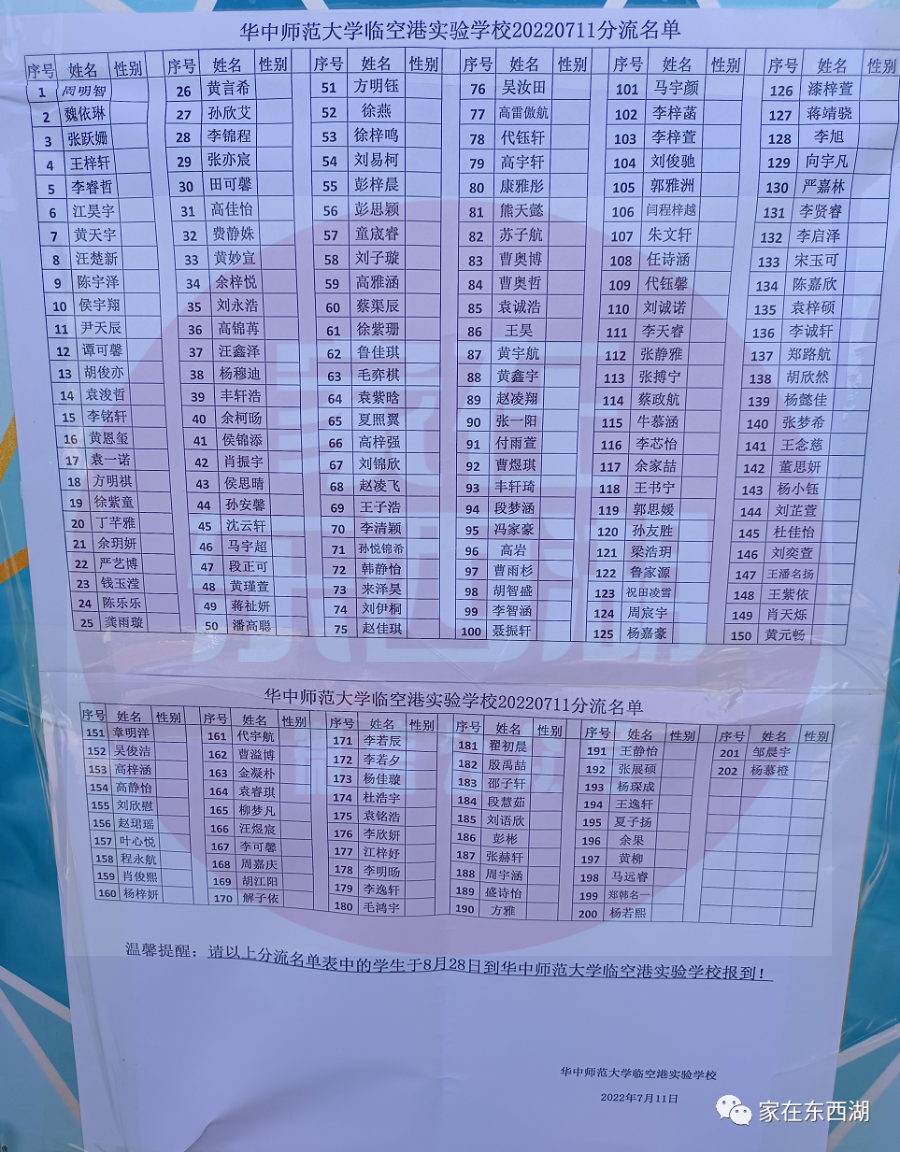 华中师范大学临空港实验学校20220711分流名单
序号 姓名 性别 序号 姓名 性别 序号 姓名 性别 序号 姓名 性别 序号 姓名 性别 序号 姓名 性别
1 周明智 26 黄言希 51 方明钰 76 吴汝田 101 马宇颜 126 漆梓萱
2 魏依琳 27 孙欣艾 52 徐燕 77 高雷傲航 102 李梓菡 127 蒋靖骁
3 张跃姗 28 李锦程 53 徐梓鸣 78 代钰轩 103 李梓萱 128 李旭
4 王梓轩 29 张亦宸 54 刘易柯 79 高宇轩 104 刘俊驰 129 向宇凡
5 李睿哲 30 田可馨 55 彭梓晨 80 康雅彤 105 郭雅洲 130 严嘉林
6 江昊宇 31 高佳怡 56 彭思颖 81 熊天懿 106 闫程梓越 131 李贤睿
7 黄天宇 32 费静姝 57 童宬睿 82 苏子航 107 朱文轩 132 李启泽
8 汪楚新 33 黄妙宣 58 刘子璇 83 曹奥博 108 任诗涵 133 宋玉可
9 陈宇泽 34 余梓悦 59 高雅涵 84 曹奥哲 109 代钰馨 134 陈嘉欣
10 侯宇翔 35 刘永浩 60 蔡渠辰 85 袁诚浩 110 刘诚诺 135 袁梓硕
11 尹天辰 36 高锦苒 61 徐紫珊 86 王昊 111 李天睿 136 李诚轩
12 谭可馨 37 汪鑫泽 62 鲁佳琪 87 黄宇航 112 张静雅 137 郑路航
13 胡俊亦 38 杨穆迪 63 毛弈棋 88 黄鑫宇 113 张搏宁 138 胡欣然
14 袁浚哲 39 丰轩浩 64 袁紫晗 89 赵凌翔 114 蔡政航 139 杨懿佳
15 李铭轩 40 余柯旸 65 夏照翼 90 张一阳 115 牛慕涵 140 张梦希
16 黄恩玺 41 侯锦添 66 高梓强 91 付雨萱 116 李芯怡 141 王念慈
17 袁一诺 42 肖振宇 67 刘锦欣 92 曹煜琪 117 余家喆 142 董思妍
18 方明祺 43 侯思晴 68 赵凌飞 93 丰轩琦 118 王书宁 143 杨小钰
19 徐紫童 44 孙安馨 69 王子浩 94 段梦涵 119 郭思媛 144 刘芷萱
20 丁芊雅 45 沈云轩 70 李清颖 95 冯家豪 120 孙友胜 145 杜佳怡
21 余玥妍 46 马宇超 71 孙悦锦希 96 高岩 121 梁浩玥 146 刘奕萱
22 严艺博 47 段正可 72 韩静怡 97 曹雨杉 122 鲁家源 147 王潘名扬
23 钱玉滢 48 黄瑾萱 73 来泽昊 98 胡智盛 123 祝田凌雪 148 王紫依
24 陈乐乐 49 蒋祉妍 74 刘伊桐 99 李智涵 124 周宸宇 149 肖天烁
25 龚雨璇 50 潘高聪 75 赵佳琪 100 聂振轩 125 杨嘉豪 150 黄元畅
华中师范大学临空港实验学校20220711分流名单
序号 姓名 性别 序号 姓名 性别 序号 姓名 性别 序号 姓名 性别 序号 姓名 性别 序号 姓名 性别
151 章明洋 161 代宇航 171 李若辰 181 翟初晨 191 王静怡 201 邹晨宇
152 吴俊洁 162 曹溢博 172 李若夕 182 殷禹喆 192 张展硕 202 杨慕橙
153 高梓涵 163 金凝朴 173 杨佳璇 183 邵子轩 193 杨琛成
154 高静怡 164 袁睿琪 174 杜浩宇 184 段慧茹 194 王逸轩
155 刘欣慰 165 柳梦凡 175 袁铭浩 185 刘语欣 195 夏子扬
156 赵珺瑶 166 汪煜宸 176 李欣妍 186 彭彬 196 余果
157 叶心悦 167 李可馨 177 江梓妤 187 张赫轩 197 黄柳
158 程永航 168 周嘉庆 178 李明旸 188 周宇涵 198 马远睿
159 肖俊熙 169 胡江阳 179 李逸轩 189 盛诗怡 199 郑韩名一
160 杨梓妍 170 解子依 180 毛鸿宇 190 方雅 200 杨若熙
温馨提醒：请以上分流名单表中的学生于8月28日到华中师范大学临空港实验学校报到！
华中师范大学临空港实验学校
2022年7月11日
家在东西湖